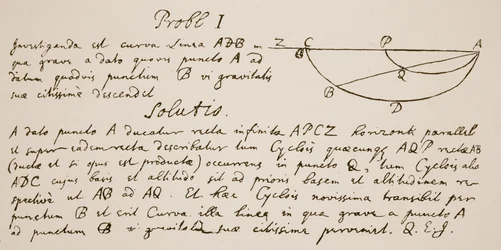 Probl I
Investiganda est curva Linea ADB in
qua grave a dato quovis puncto A ad
datum quodvis punctum B vi gravitatis
suæ citissimè descendet
Z C P A
B Q D
Solutio.
A dato puncto A ducatur recta infinita APCZ horizonti parallela
et super eadem recta describatur tum Cyclois quæcunque AQP rectæ AB
(ductæ et si opus est productæ) occurrens in puncto Q, tum Cyclois alia
ADC cujus basis et altitudo sit ad prioris basem et altitudinem re-
spective ut AB ad AQ. Et hæc Cyclois novissima transibit per
punctum B et erit Curva illa linea in qua grave a puncto A
ad punctum B vi gravitatis suæ citissime perveniet. Q.E.I.